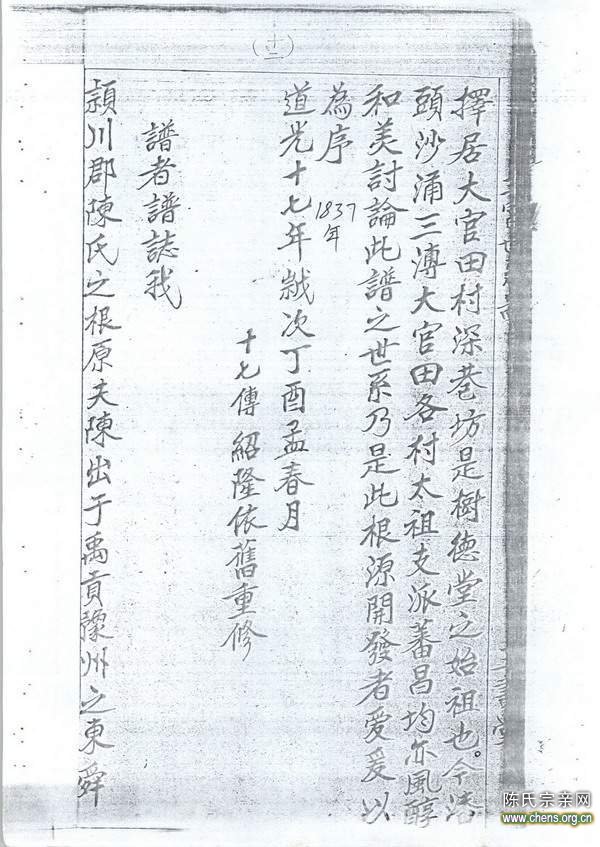 十二
擇居大官田村深巷坊是樹德堂之始祖也。今漆
頭沙涌三溥大官田各村太祖支派蕃昌均亦風醇
和美討論此譜之世系乃是此根源開發者爰爰以
為序
1837年
道光十七年 歲次丁酉孟春月
十七傳 紹隆依舊重修
譜者譜誌我
頴川郡陳氏之根原夫陳出于禹貢豫州之東舜
陈氏宗亲网
www.chens.org.cn